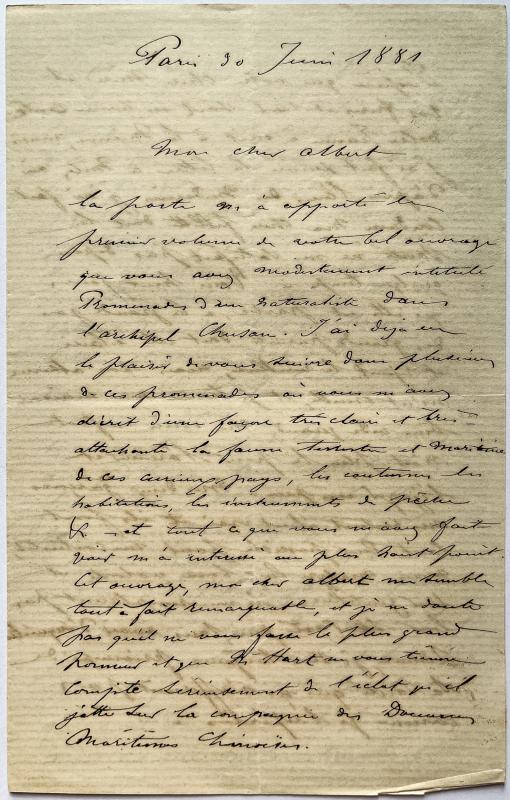 Paris 30 Juin 1881
Mon cher Albert
la poste m'a apporté le
premier volume de votre bel ouvrage
que vous avez modestement intitulé
Promenades d'un naturaliste dans
l'archipel Chusan. J'ai déja eu
le plaisir de vous suivre dans plusieurs
de ces promenades où vous m'avez
décrit d'une façon très claire et très
attachante la faune terrestre et maritime
de ces curieux pays, les coutumes les
habitations, les instruments de pêche
&c - et tout ce que vous m'avez fait
voir m'a interessé au plus haut point.
Cet ouvrage, mon cher Albert me semble
tout à fait remarquable, et je ne doute
pas qu'il ne vous fasse le plus grand
honneur et que Mr Hart ne vous tienne
compte sérieusement de l'éclat qu'il
jette sur la compagnie des Douanes
Maritimes Chinoises.